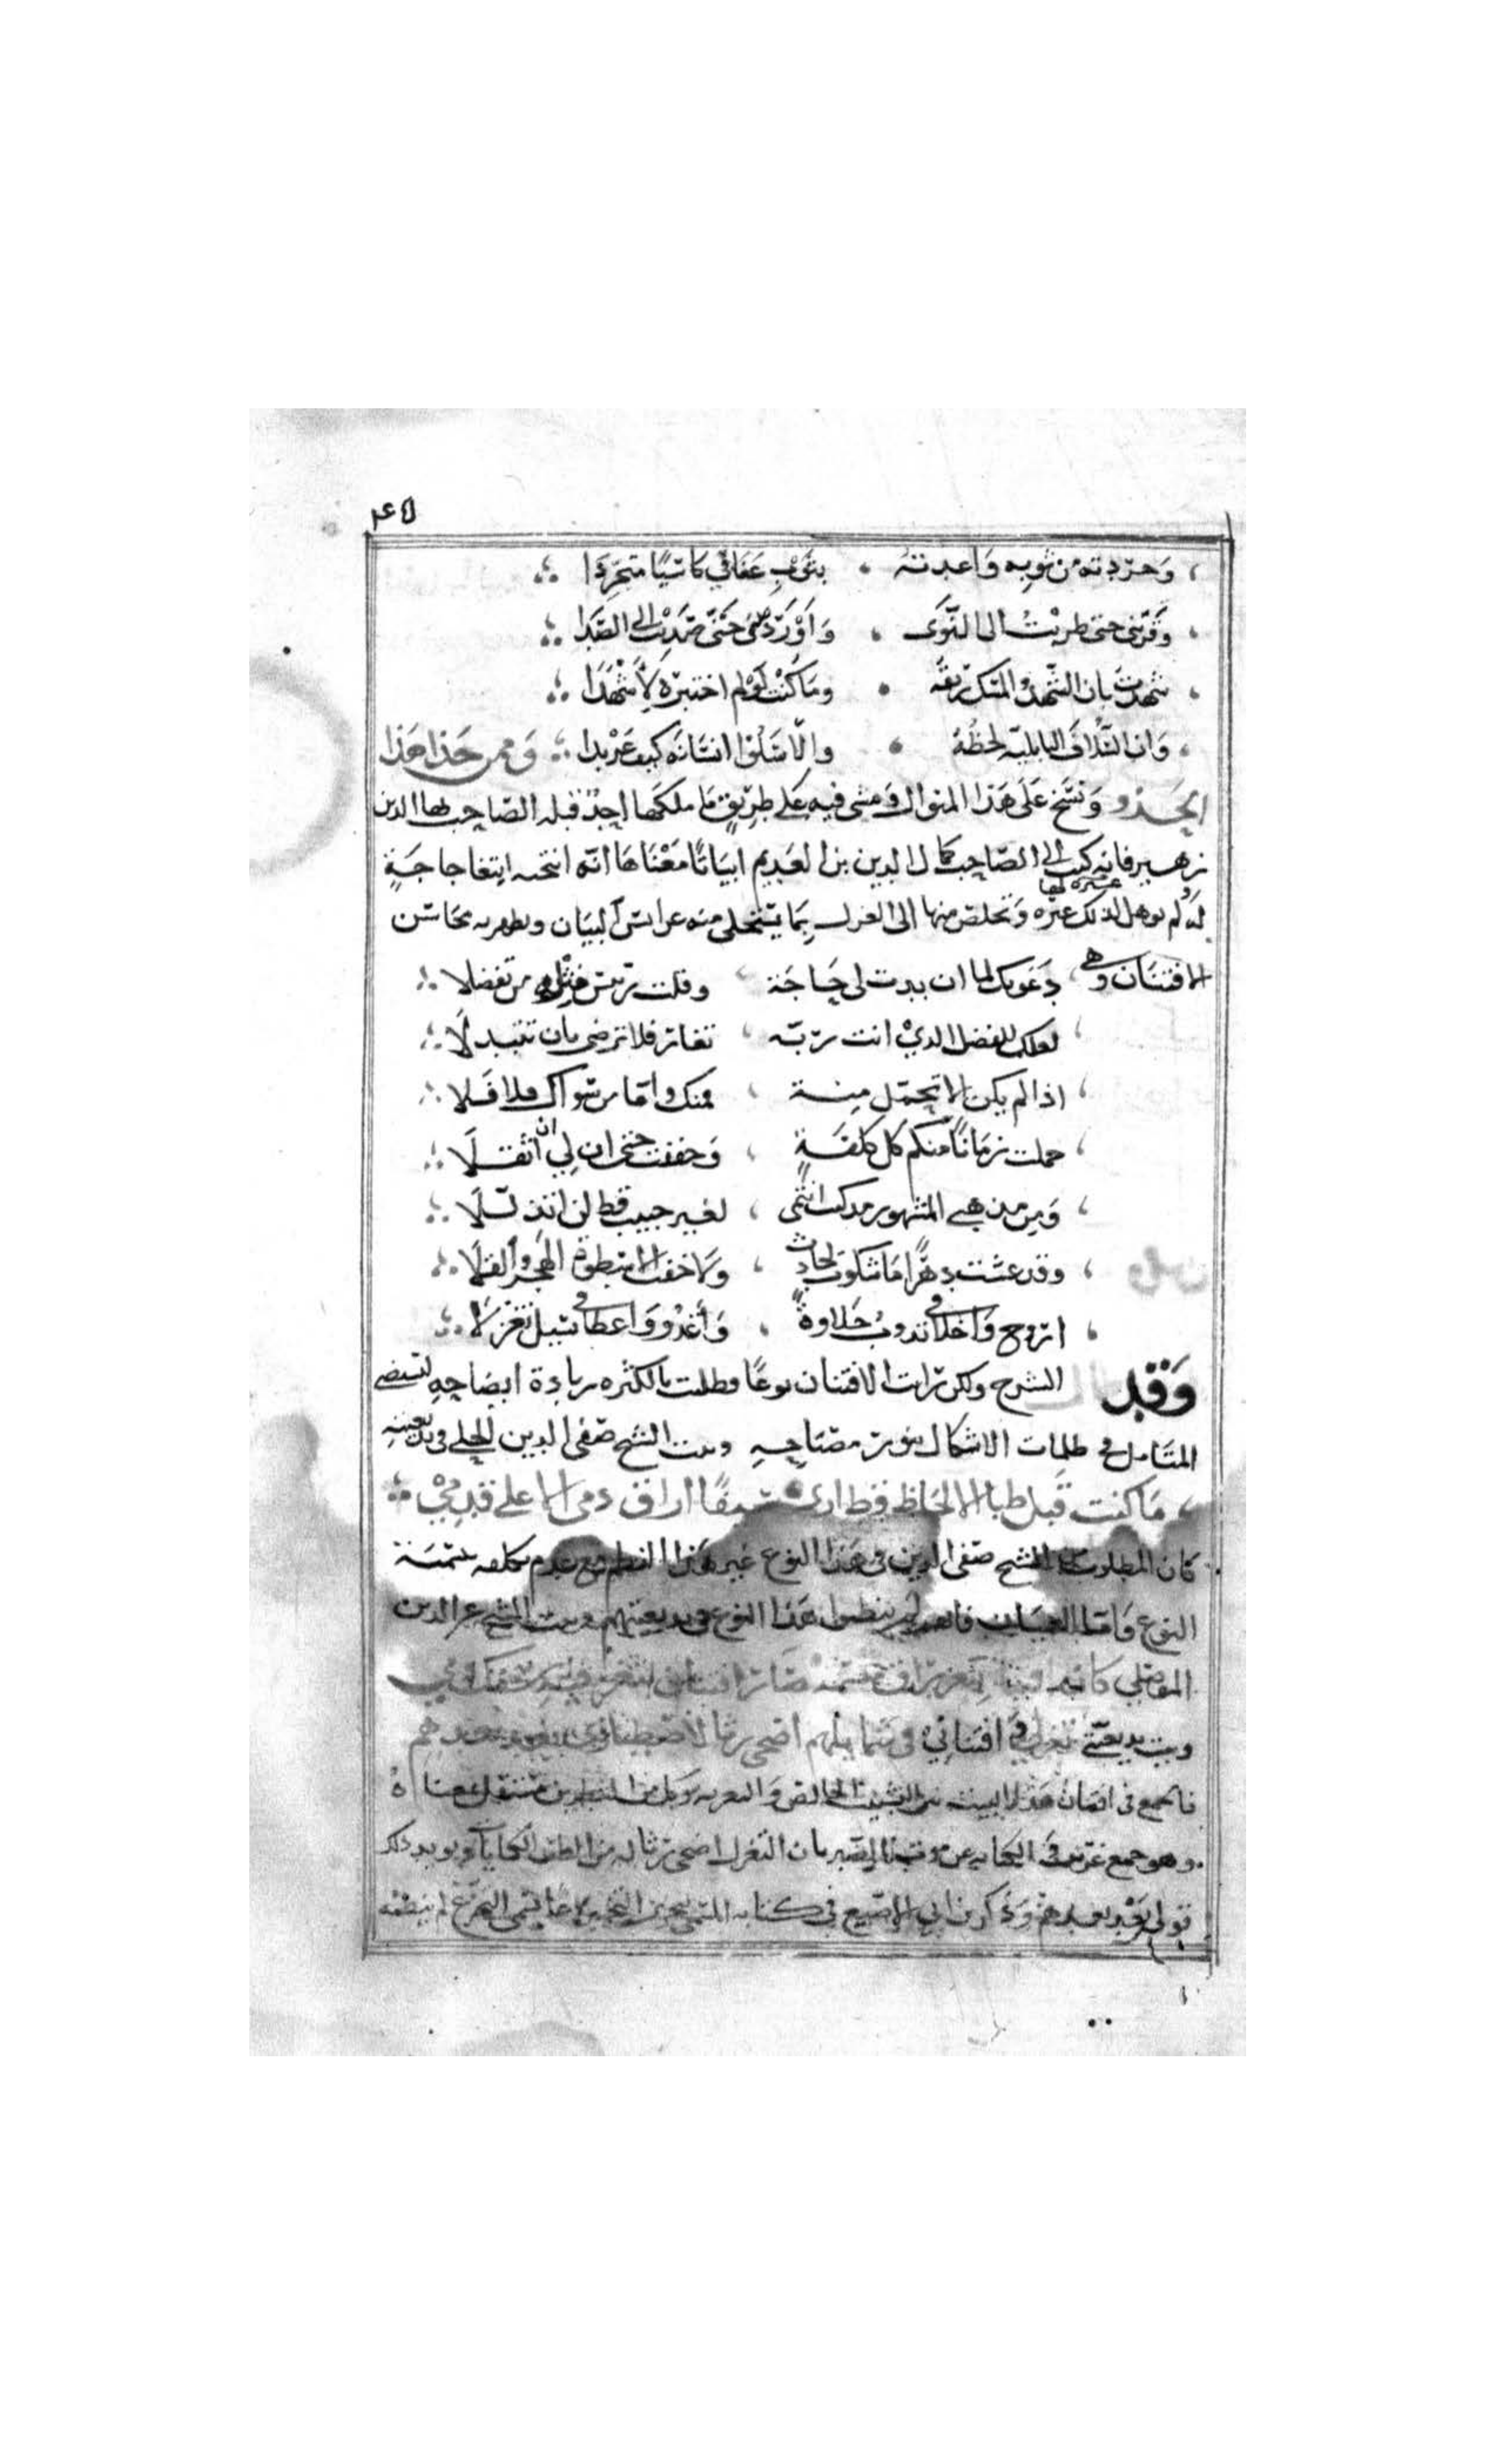 ٤٥
وجردته من ثوبه واعدته ، بثوب عفافي كاسيا متجردا
وقربني حتى طربت الى النوى ، واوردني حتى صديت الى الصدا
شهدت بان الشهد والمسك ريقه • وما كنت لو لم اختبره لاشهدا
وان السلاف البابلية لحظه • والا سلوا انسانه كيف عربدا ومن حذا هذا
الحذو ونسج على هذا المنوال ومشى فيه على طريق ما ملكها احد قبله الصاحب بها الدين
زهير فانه كتب الى الصاحب كمال الدين بن العديم ابياتا معناها انه انتخبه ابتغا حاجة
له لم يوهل لذلك غيره وتخلص منها الى الغزل بما يستجلى منه عرايس البيان ويظهر به محاسن
الافتنان وهي ، دعوتك لما ان بدت لي حاجة ، وقلت رئيس مثله من تفضلا
لعلك للفضل الذي انت ربه ، تغار فلا ترضى بان تتبدلا
اذا لم يكن الا تحمل منة ، فمنك واما من سواك فلا فلا
حملت زمانا منكم كل كلفة ، وخففت حتى ان لي ان اثقلا
ومن مذهبي المشهور مذ كنت انني ، لغير حبيب قط لن اتذللا
وقد عشت دهرا ما شكوت لحادث ، ولا خفت الا سطوة الهجر والقلا
اروح واخلاقي تذوب حلاوة ، وأغدو واعطافي تسيل تغزلا
وقد الشرح ولكن رايت الافتنان نوعا فطلبت بالكثره زيادة ايضاحه ليستضي
المتامل في ظلمات الاشكال بنور مصباحه وبيت الشيخ صفي الدين الحلي في بديعيته
ما كنت قبل ظبا الالحاظ قط ارى سيفا اراق دمي الا على قدمي
كان المطلوب من الشيخ صفي الدين في هذا النوع غير هذا النظم مع عدم تكلفه بتسمية
النوع واما العميان فانهم لم ينظموا هذا النوع في بديعيتهم وبيت الشيخ عز الدين
الموصلي
وبيت بديعيتي تغزلي وافتناني في شمايلهم اضحى رثا لاصطباري بعد بعدهم
فالجمع في افتنان هذا البيت بين النسيب الخالص والتعزيه وكل من الشطرين مستقل بمعناه
وهو جمع غريب في بان التغزل اضحى رثا له من الطف الكنايات ويويد ذلك
قولي بعد بعدهم وذكر بن ابي الاصبع في كتابه المسمى بتحرير التحبير لم ينظمه